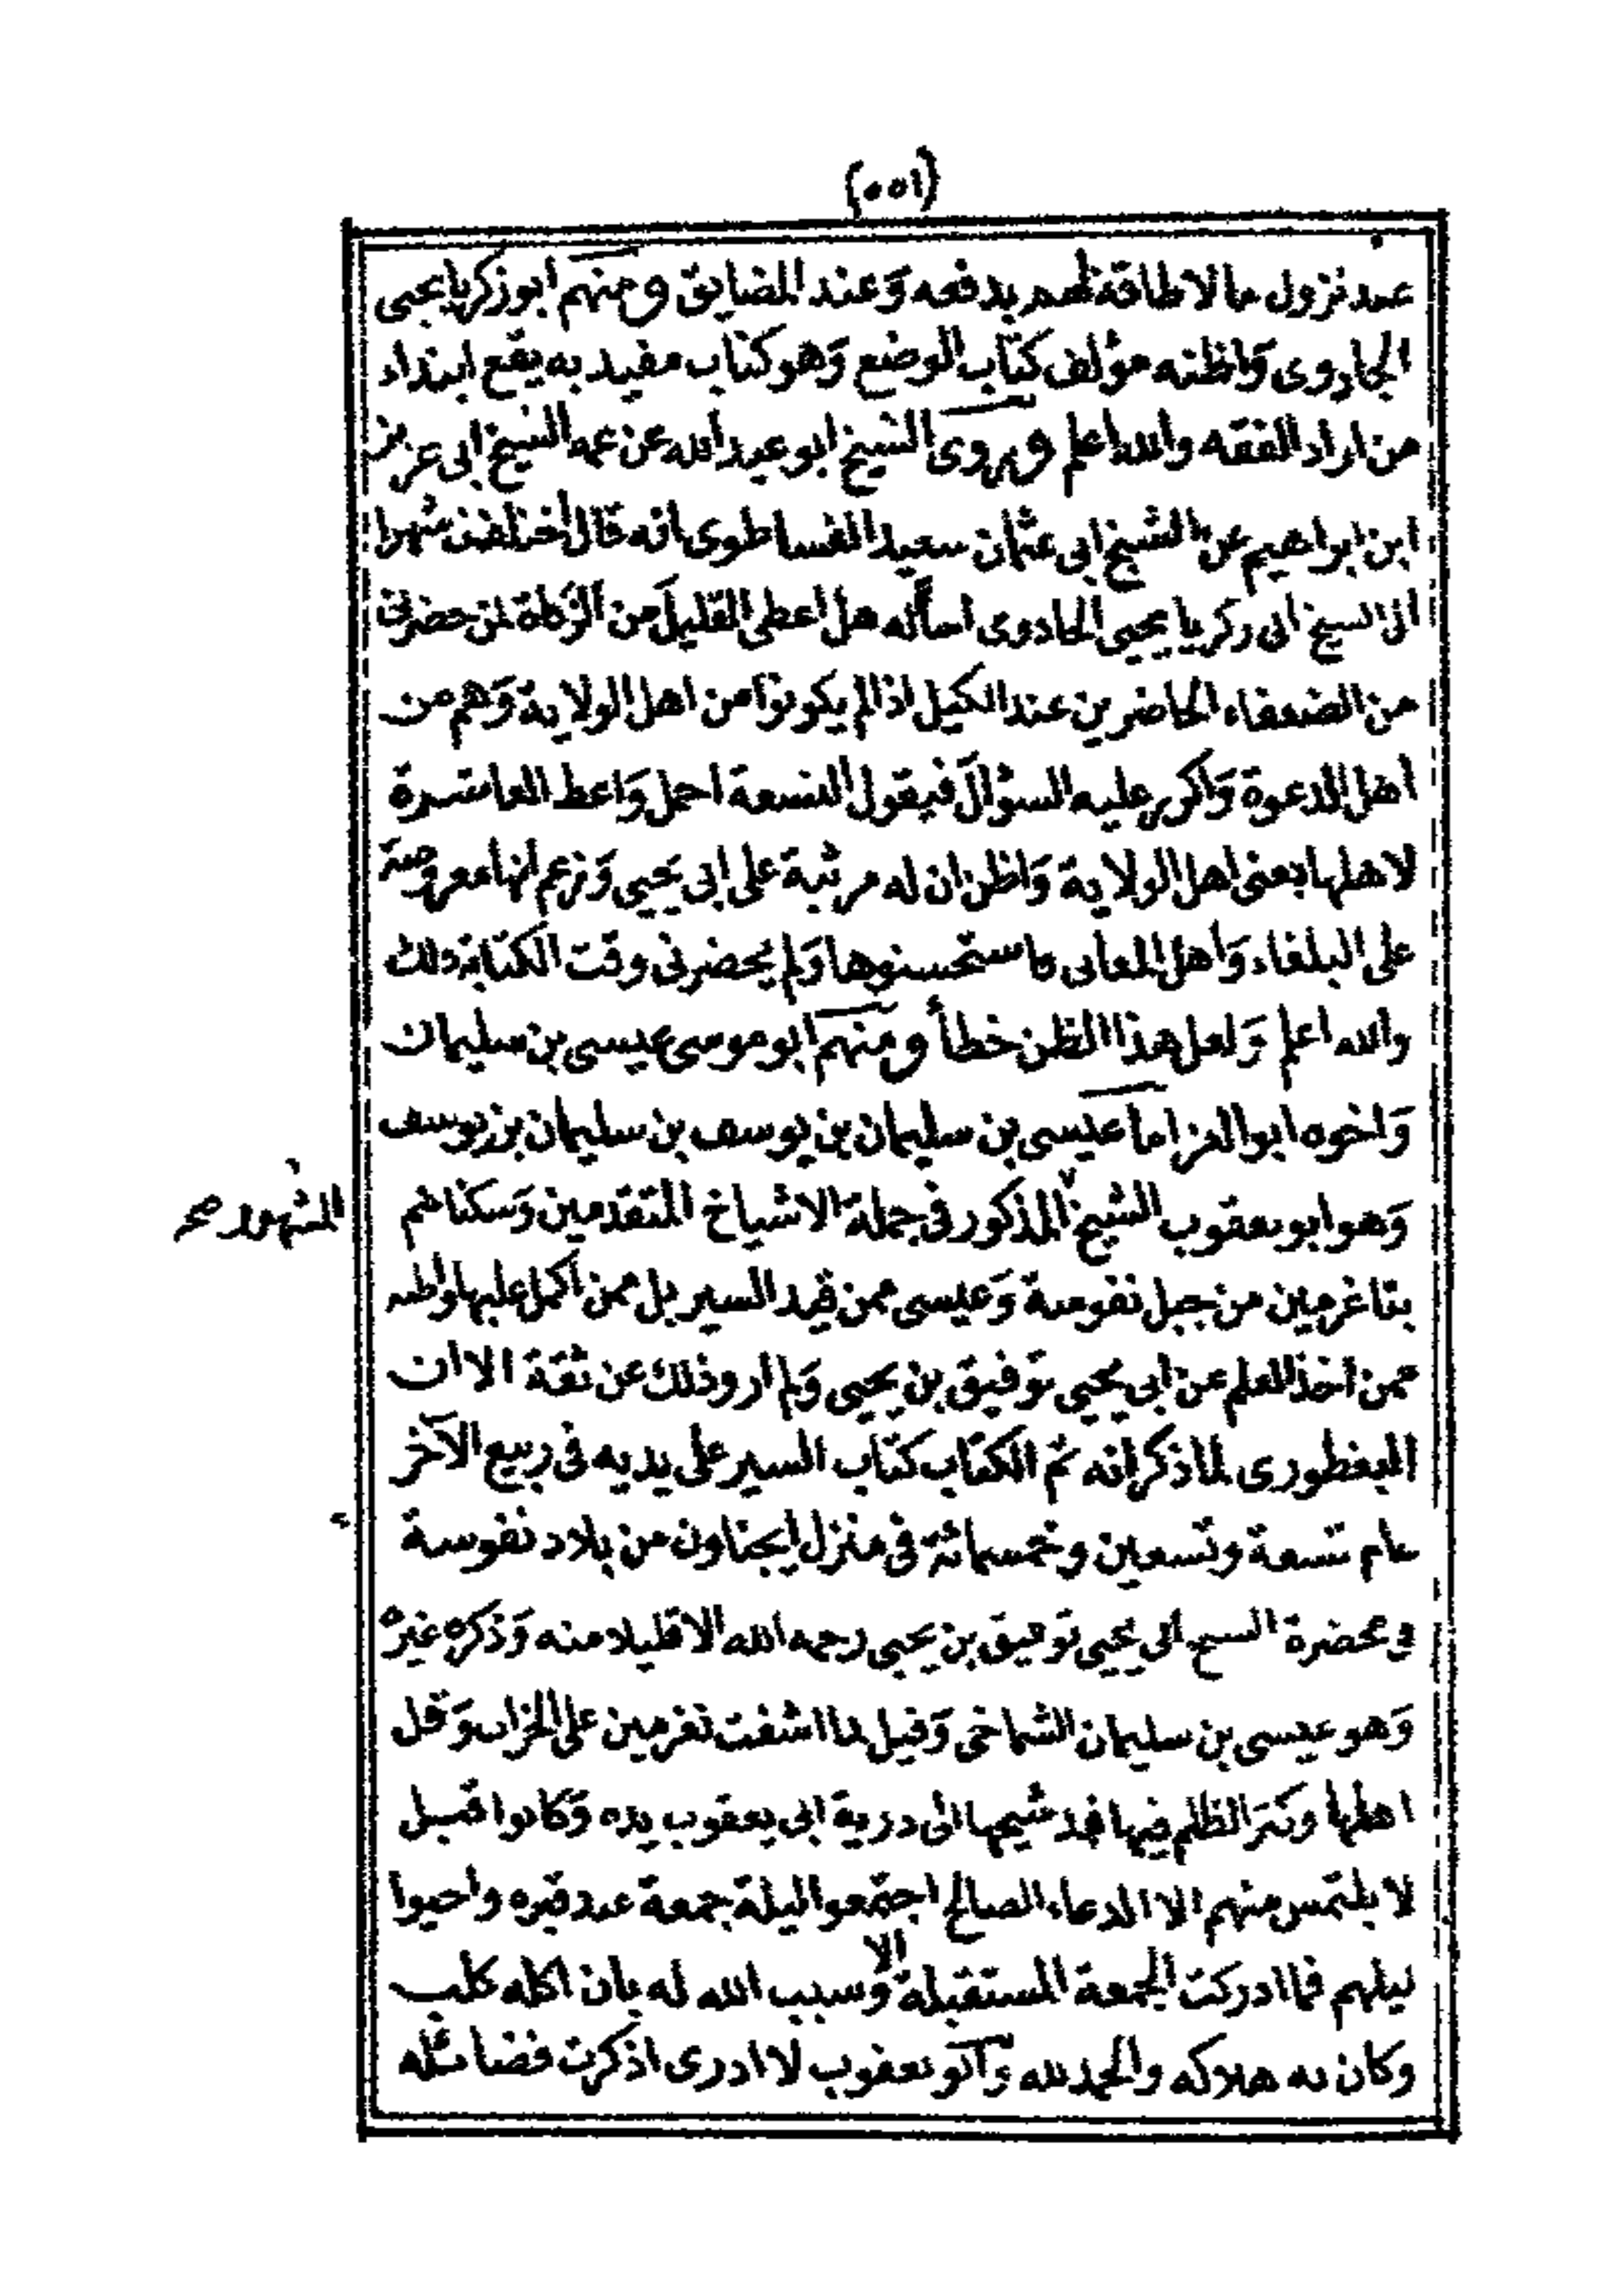 (٥٥١)
عند نزول ما لا طاقة لهم بدفعه وَعند المضايق ومنهم ابو زكريا يحيى
الجادوى وَاظنه مؤلف كتاب الوضع وَهو كتاب مفيد به يقع ابتداء
من اراد الفقه والله اعلم ويروى الشيخ ابو عبد الله عن عمه الشيخ ابى عزيز
ابن ابراهيم عن الشيخ ابى عثمان سعيد الفساطوى انه قال اختلفت شهرا
الى الشيخ ابى زكريا يحيى الجادوى اسأله هل اعطى القليل من الزكاة لمن حضرنى
من الضعفاء الحاضرين عند الكيل اذا لم يكونوا من اهل الولاية وَهم من
اهل الدعوة وَاكرر عليه السؤال فيقول التسعة احمل وَاعط العاشرة
لاهلها بعنى اهل الولاية وَاظن ان له مرثية على ابى يحيى وَزعم انها معروضة
على البلغاء وَاهل المعانى فاستحسنوها وَلم يحضرنى وقت الكتابة ذلك
والله اعلم وَلعل هذا الظن خطأ ومنهم ابو موسى عيسى بن سليمان
وَاخوه ابو العز اما عيسى بن سليمان بن يوسف بن سليمان بن يوسف
وَهو ابو يعقوب الشيخ المذكور فى جملة الاشياخ المتقدمين وَسكناهم
المشهور صح
بتاغرمين من جبل نفوسة وَعيسى ممن قيد السير بل ممن اكمل عليها واظنه
ممن اخذ العلم عن ابى يحيى توفيق بن يحيى وَلم ارو ذلك عن ثقة الا ان
البغطورى لما ذكر انه تم الكتاب كتاب السير على يديه فى ربيع الآخر
عام تسعة وتسعين وخمسمائة فى منزل ايجناون من بلاد نفوسة
فى محضرة الشيخ ابى يحيى توفيق بن يحيى رحمه الله الا قليلا منه وَذكره غيره
وَهو عيسى بن سليمان الشماخى وَقيل لما اشفت تغرمين على الخراب وَقل
اهلها وكثر الظلم فيها فمد شيخها الى ذرية ابى يعقوب يده وَكانوا قبل
لا يلتمس منهم الا الدعاء الصالح اجتمعوا ليلة جمعة عند قبره واحيوا
ليلهم فما ادركت الجمعة المستقبلة الا وسبب الله له بان اكله كلب
وكان به هلاكه والحمد لله وَابو يعقوب لا ادرى اذكرت فضائله